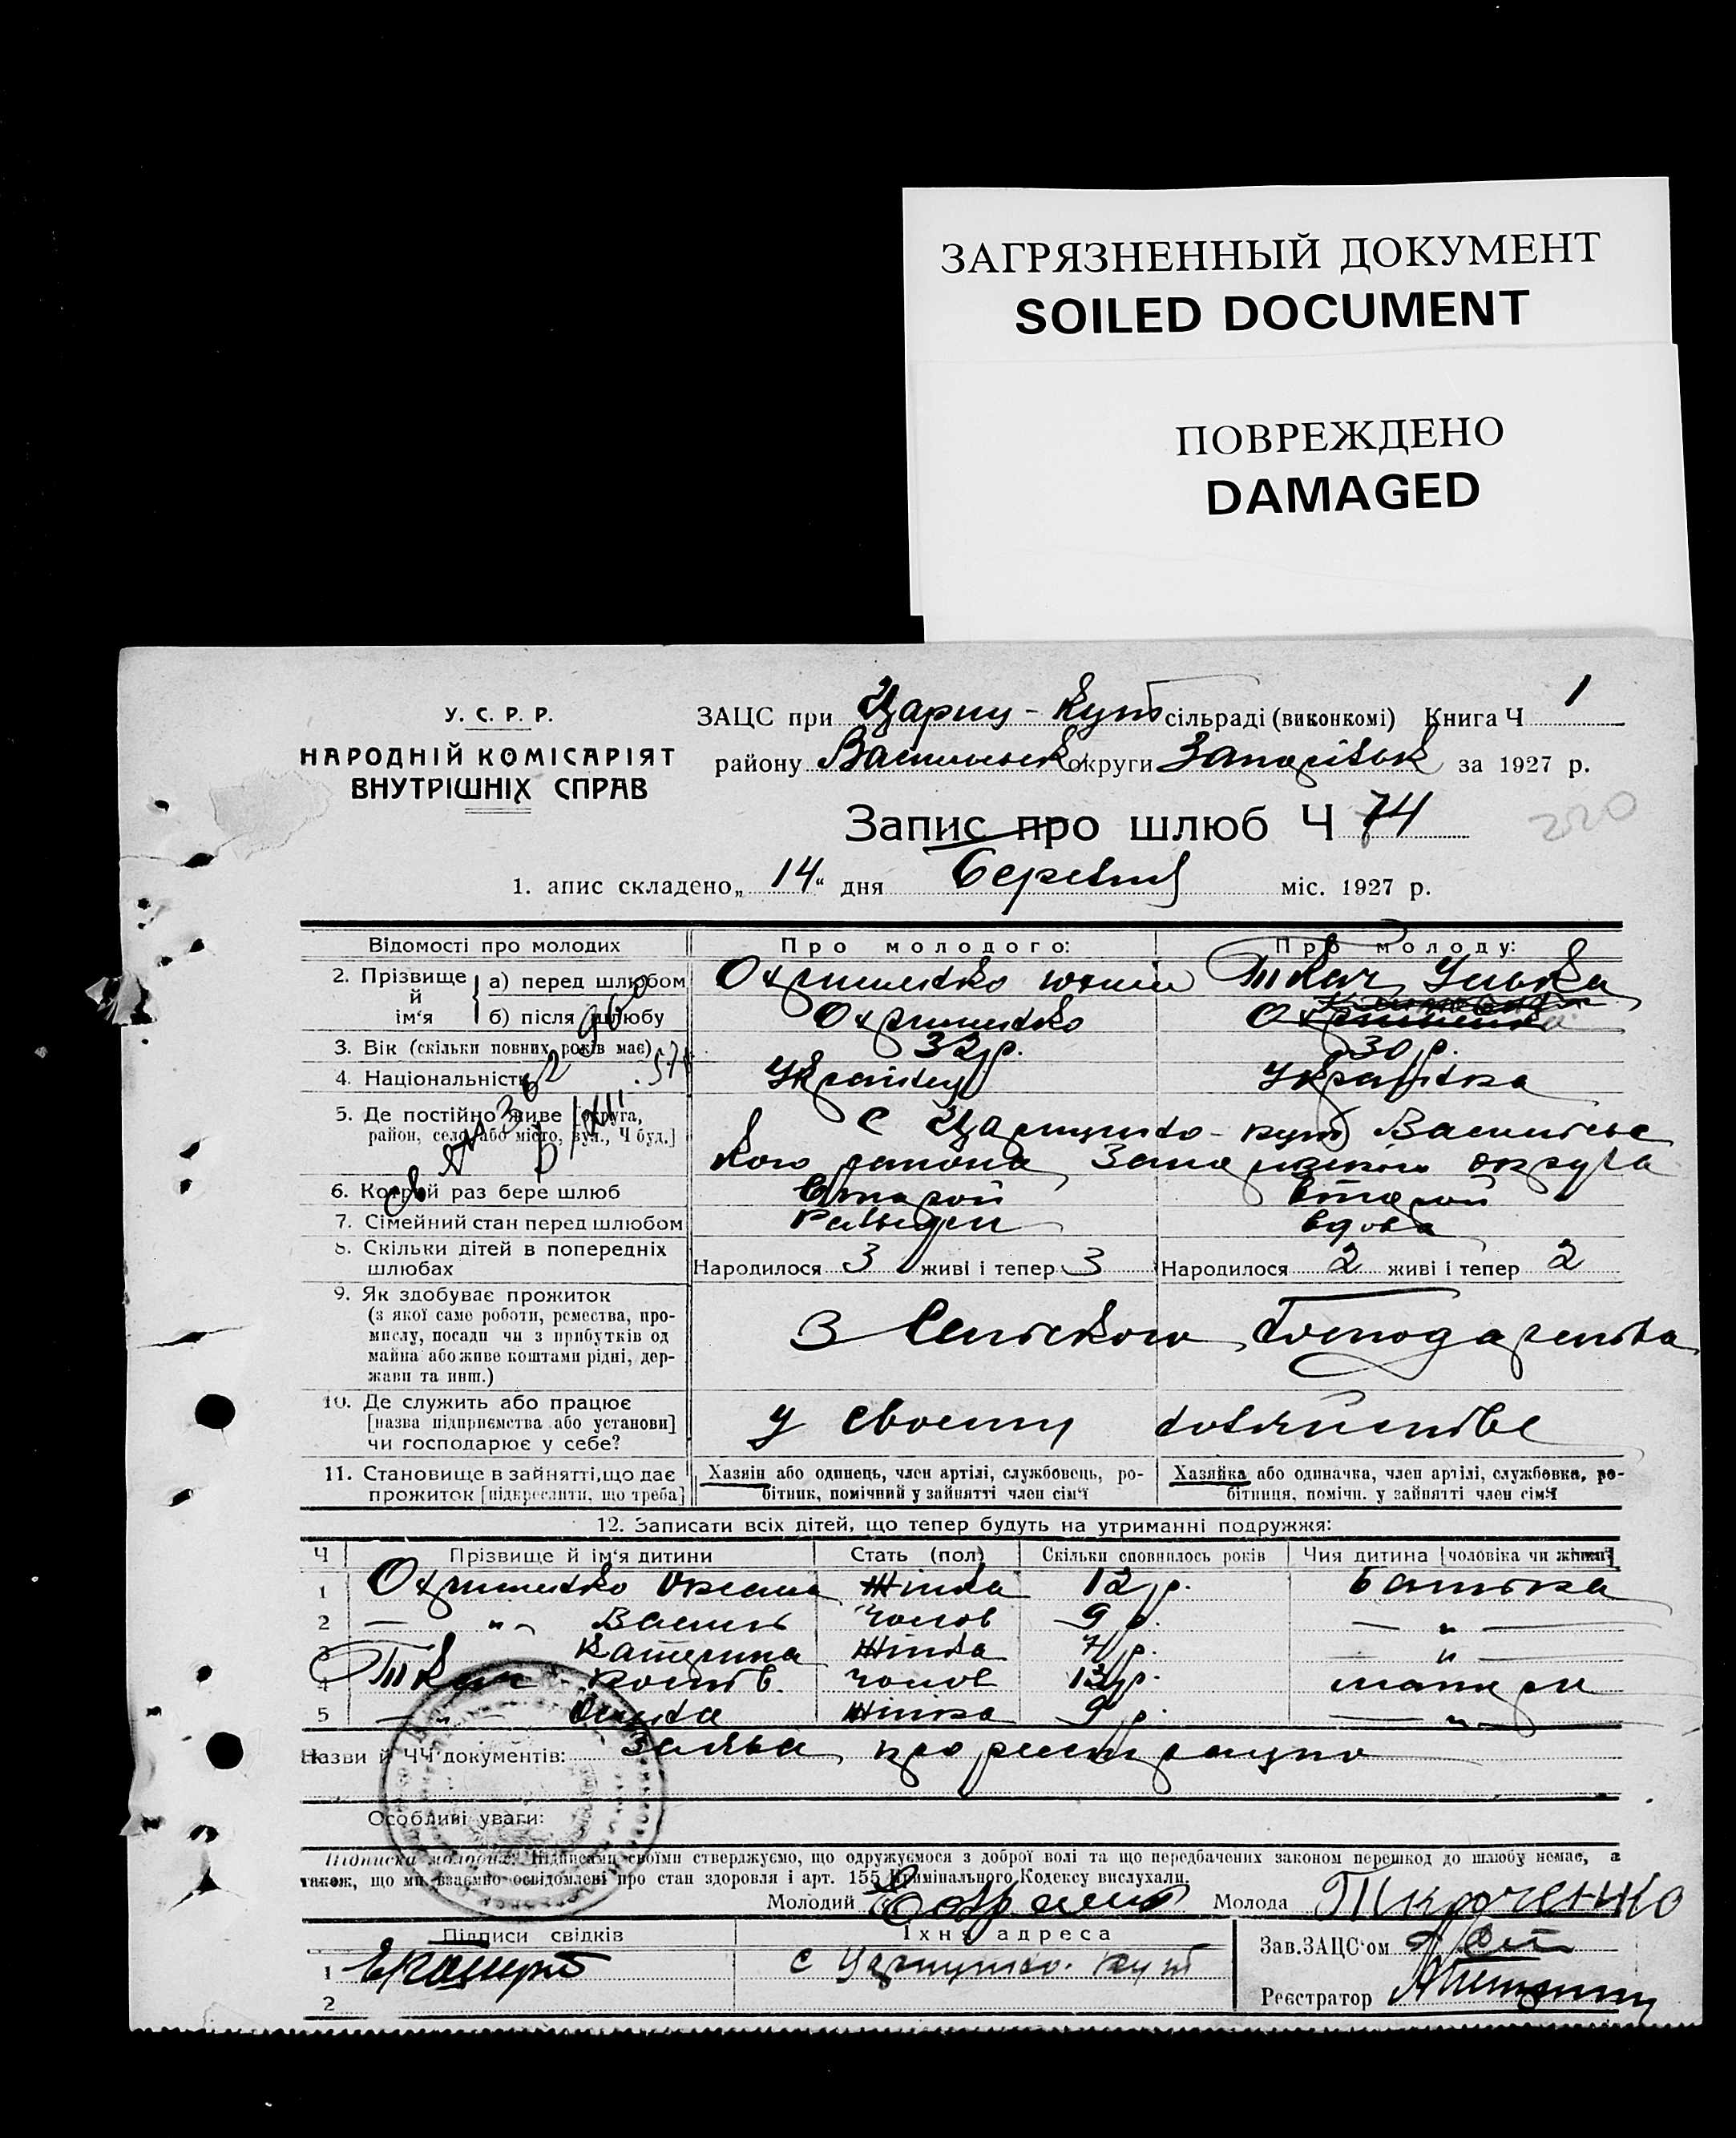 ЗАГРЯЗНЕННЫЙ ДОКУМЕНТ
SOILED DOCUMENT
ПОВРЕЖДЕНО
DAMAGED
У. С. Р. Р.
НАРОДНІЙ КОМІСАРІЯТ
ВНУТРІШНІХ СПРАВ
ЗАЦС при Цариц-Кут сільраді (виконкомі) Книга Ч 1
району Васильевск округи Запоріжськ за 1927 р.
Запис про шлюб Ч 74
220
1. апис складено „ 14 “ дня березня міс. 1927 р.
Відомості про молодих Про молодого: Про молоду:
2. Прізвище й ім‘я а) перед шлюбом Охрименко Ткач Улька
б) після шлюбу Охрименко Охрименко
3. Вік (скільки повних років має) 32 р. 30 р.
4. Національність Українец Українка
5. Де постійно живе [округа, район, село або місто, вул., Ч буд.] с Царицино-кут Васильевс
кого района Запоріжского округа
6. Котрий раз бере шлюб второй второй
7. Сімейний стан перед шлюбом вдова
8. Скільки дітей в попередніх шлюбах Народилося 3 живі і тепер 3 Народилося 2 живі і тепер 2
9. Як здобуває прожиток
(з якої саме роботи, ремества, про-
мислу, посади чи з прибутків од
майна або живе коштами рідні, дер-
жави та инш.)
З Сельского Господарства
10. Де служить або працює
[назва підприємства або установи]
чи господарює у себе?
У своему
11. Становище в зайнятті, що дає
прожиток [підкреслити, що треба]
Хазяїн або одинець, член артілі, службовець, ро-
бітник, помічний у зайнятті член сім‘ї
Хазяйка або одиначка, член артілі, службовка, ро-
бітниця, помічн. у зайнятті член сім‘ї
12. Записати всіх дітей, що тепер будуть на утриманні подружжя:
Ч Прізвище й ім‘я дитини Стать (пол) Скільки сповнилось років Чия дитина [чоловіка чи жінки]
1 Охрименко Оксана Жінка 12 р. Батька
2 — „ — Василь Чолов 9 р. — „ —
3 Катерина Жінка 7 р. „ —
4 Ткач Чолов 13 р. матери
5 — „ — Жінка 9 р. — „ —
Назви й ЧЧ документів: Заява про регистрацию
Особливі уваги:
Підписка молодих: Підписами своїми стверджуємо, що одружуємося з доброї волі та що передбачених законом перешкод до шлюбу немає, а
також, що ми взаємно освідомлені про стан здоровля і арт. 155 Кримінального Кодексу вислухали.
Молодий Молода Ткаченко
Підписи свідків Їхня адреса Зав.ЗАЦС‘ом
1 с Царицино-кут
2
Реєстратор